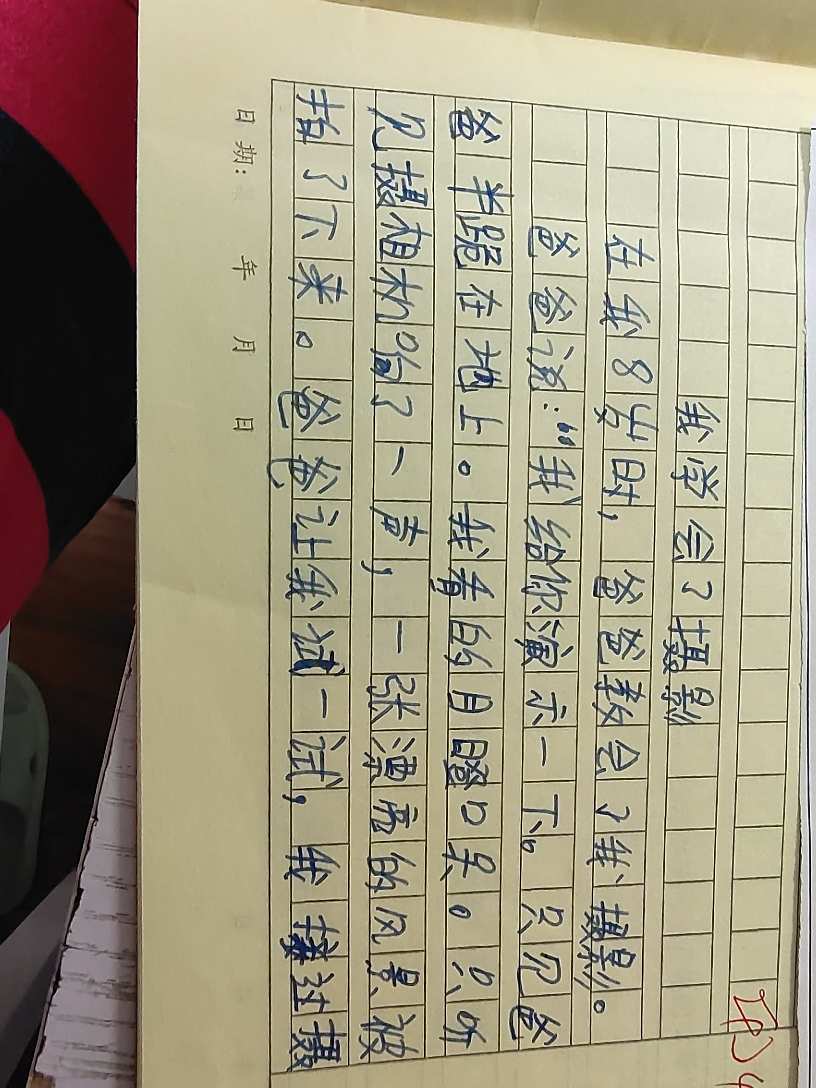 我学会了摄影
在我8岁时，爸爸教会了我摄影。
爸爸说：“我给你演示一下。只见爸
爸半跪在地上。我看的月瞪口呆。只听
见摄相机哈了一声，一张漂亮的风景被
拍了下来。爸爸让我试一试，我接过摄
日期： 年 月 日